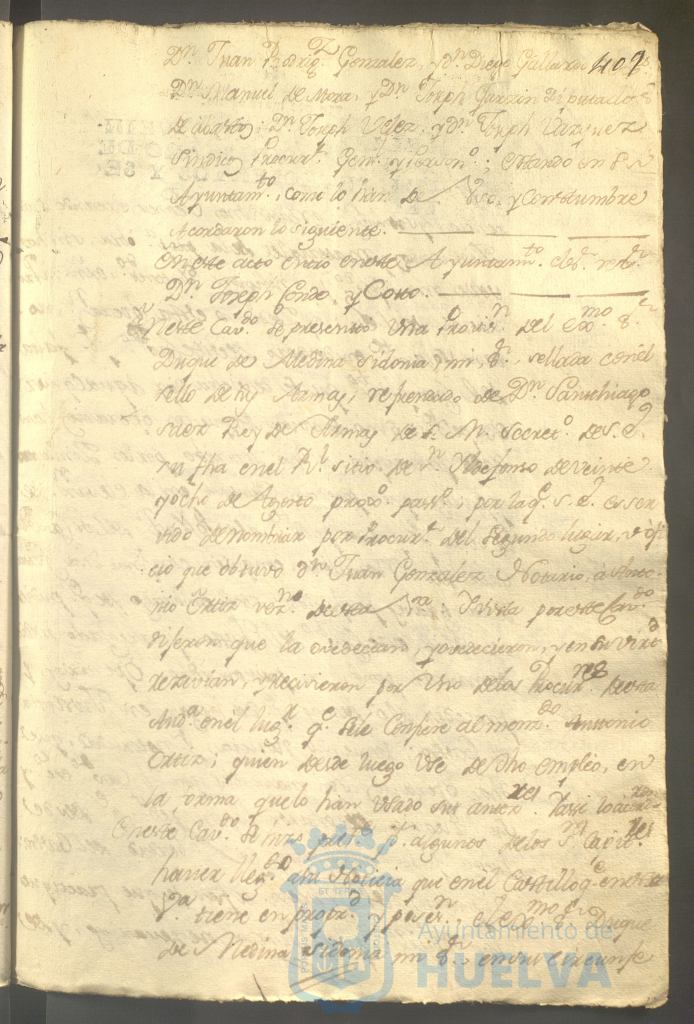 Dn. Juan Rodrigz Gonzalez, y Dn Diego Gallardo 409
Dn Manuel de Mora, y Dn Joseph Garzon Diputados
de abastos; Dn Joseph Velez, y Dn Joseph Vazquez
Sindico Procurr. Genl. y Person.o; estando en su
Ayuntam.to, como lo han de Vso, y Costumbre
Acordaron lo siguiente.
En este acto entro en este Ayuntam.to el Sr. regr.
Dn. Joseph Conde y Coto.
En este Cav.do se presento Una Provis.n del Exmo. Sr.
Duque de Medina Sidonia, mi Sr. sellada con el
sello de sus Armas, refrendado de Dn. Santhiago
Saez Rey de Armas de S. M. Secret.o de S. E.
su fha en el Rl. sitio de Sn. Yldefonso de Veinte
y ocho de Agosto prox.o pas.do; por la q.e S. E. es ser
vido de nombrar por Procur.r del Segundo lugar, v ofi
cio que obtuvo Dn. Juan Gonzalez Notario, a Anto
nio Ortiz vez.no de esta Va.; Y Vista por este Cav.do
dijeron que la ovedecian, y ovedecieron, y en su virt.d
rezivian, y recivieron por Uno de los Procur.res de esta
Aud.a en el lug.r q.e se le Confiere al menz.do Antonio
Ortiz; quien desde luego Use de dho empleo, en
la forma que lo han Usado sus antez.res Y assi lo acord.ron
En este Cav.do se hizo prest.e p.r algunos de los S.res Capit.res
haver lleg.do a su Noticia que en el Castillo q.e en esta
Va. tiene en propr.d y poses.n el Exmo. Sr. Duque
de Medina Sidonia mi Sr. en su circunfe
Ayuntamiento de
HUELVA